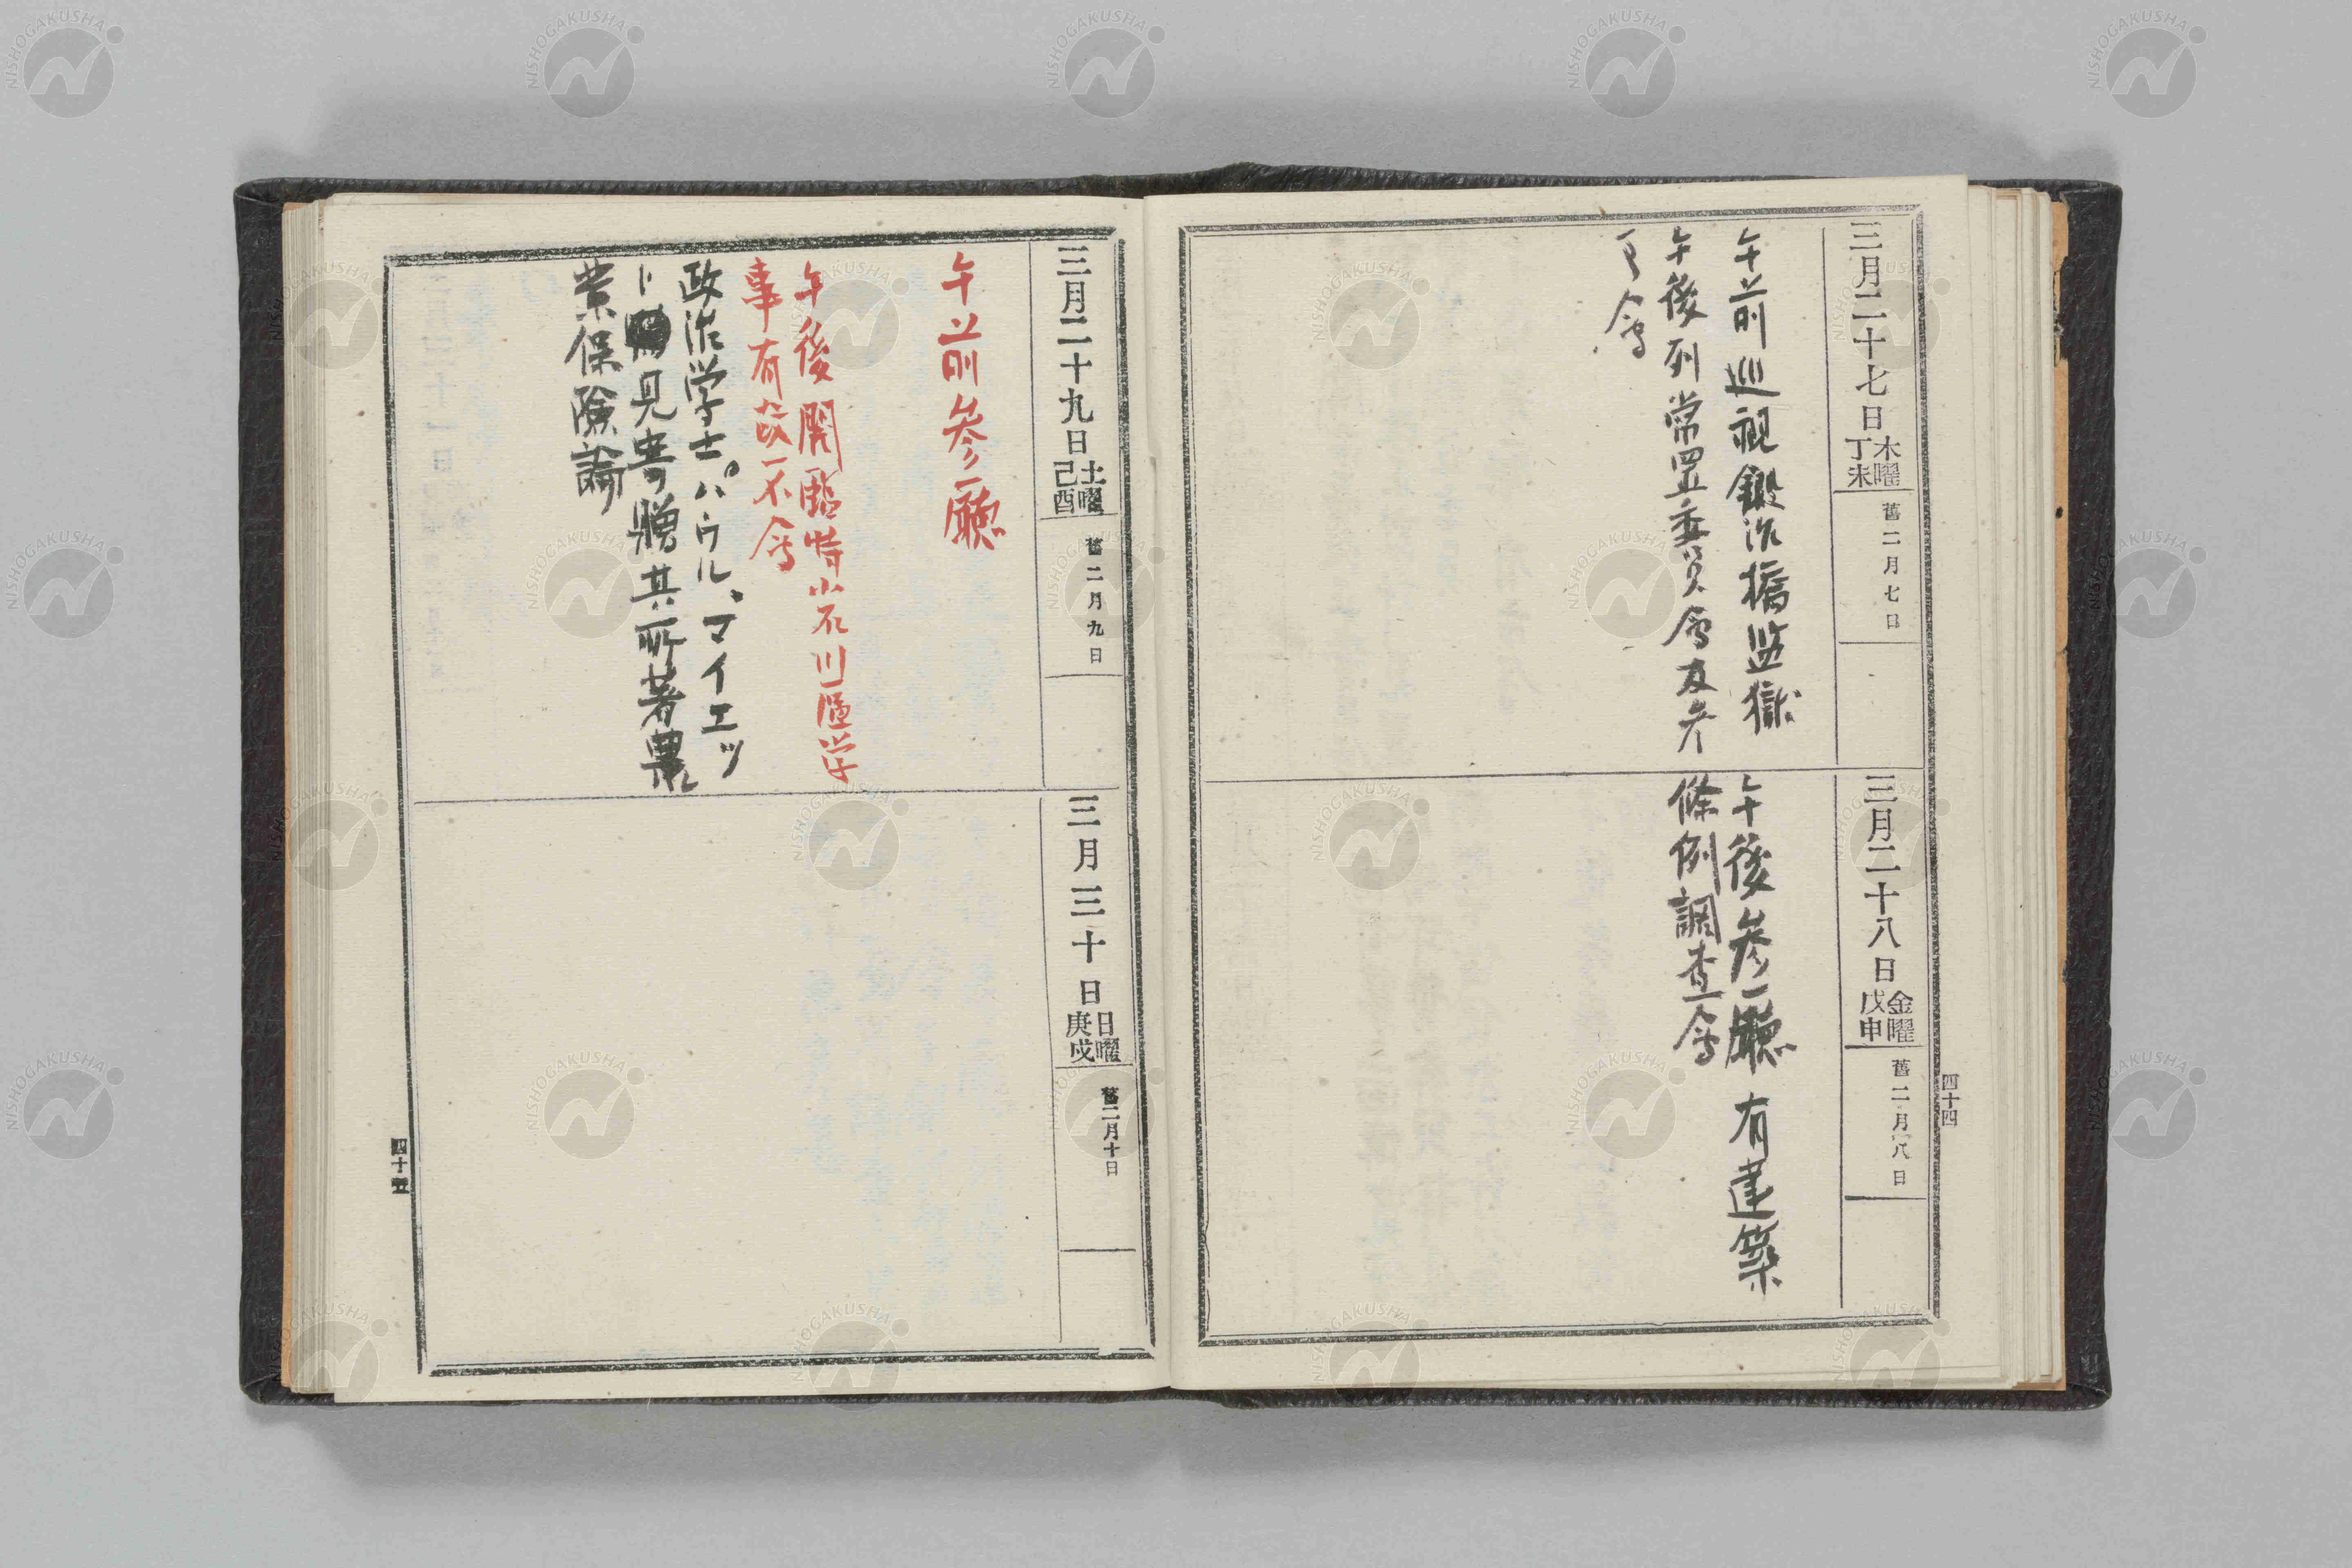 三月二十七日
木曜
丁未
舊二月七日
午前巡視鍛冶橋監獄
午後列常置委員會及参
事會
三月二十八日
金曜
戊申
舊二月八日
午後参廳 有建築
條例調査會
四十四
三月二十九日
土曜
己酉
舊二月九日
午前参廳
午後開臨時小石川區学
事有故不會
政治学士パウル、マイエツ
ト見寄贈其所著農
業保險論
三月三十日
日曜
庚戌
舊二月十日
四十五
NISHOGAKUSHA